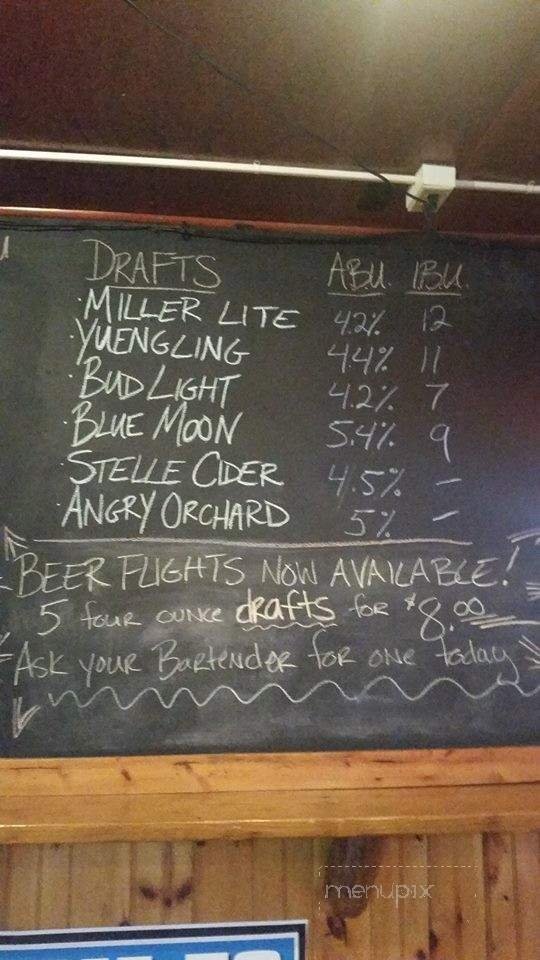 DRAFTS ABV. IBU.
·MILLER LITE 4.2% 12
·YUENGLING 4.4% 11
·BUD LIGHT 4.2% 7
·BLUE MOON 5.4% 9
·STELLE CIDER 4.5% –
·ANGRY ORCHARD 5% –
BEER FLIGHTS NOW AVAILABLE!
5 four ounce drafts for $8.00
Ask your Bartender for one today
menupix